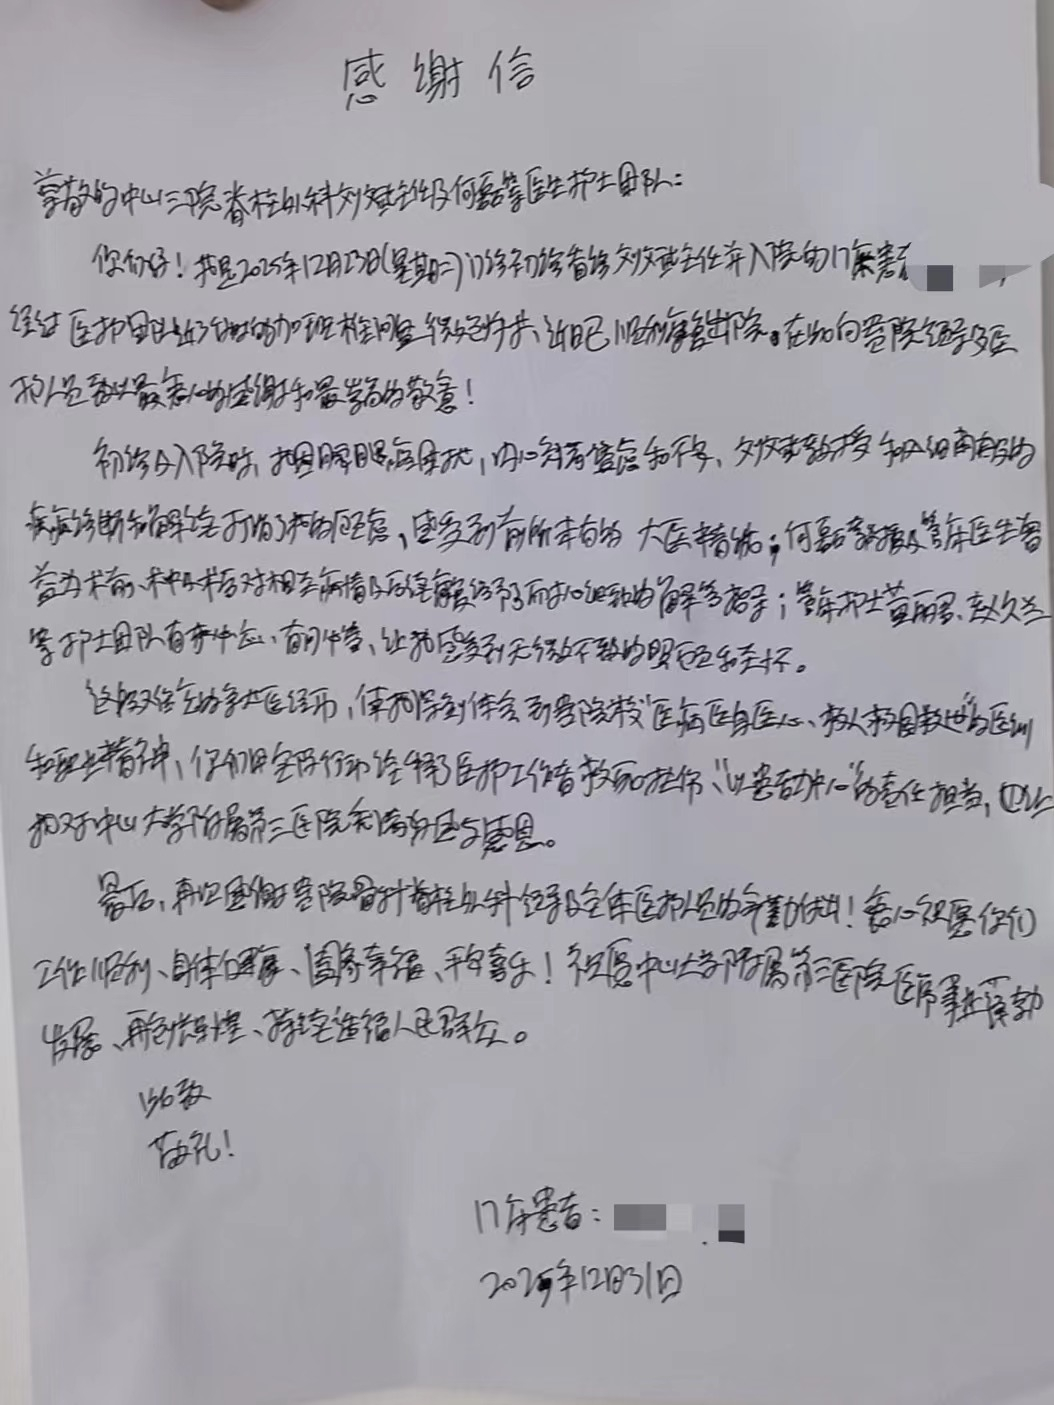 感谢信
尊敬的中山三院脊柱外科刘斌主任及何磊等医生护士团队：
你们好！我是2025年12月23日(星期二)门诊初诊看诊刘斌主任并入院的17床患者
经过医护团队的加班，近日已顺利康复出院。在此向贵院领导及医
护人员致以最衷心的感谢和最崇高的敬意！
初诊及入院时，我因腰腿疼困扰，内心有着焦虑和不安，教授和入细的
疾病诊断和解读打消了我的顾虑，感受到前所未有的大医精诚；何磊教授及管床医生
益为术前、术中、术后对相关病情及后续康复给予了耐心细致的解答指导；管床护士黄丽
等护士团队有求必应、有问必答，让我感受到无微不至的照顾和关怀。
这段难忘的求医经历，使我深刻体会到贵院校“医病医身医心、救人救国救世”的医训
和职业精神，你们用实际行动诠释了医护工作者救死扶伤、“以患者为中心”的责任担当，也让
我对中山大学附属第三医院充满好感与感恩。
最后，再次感谢贵院骨科脊柱外科领导及全体医护人员的辛勤付出！衷心祝愿你们
工作顺利、身体健康、阖家幸福、平安喜乐！祝愿中山大学附属第三医院医疗事业蓬勃
发展、再创辉煌、持续造福人民群众。
此致
敬礼！
17床患者：
2025年12月31日